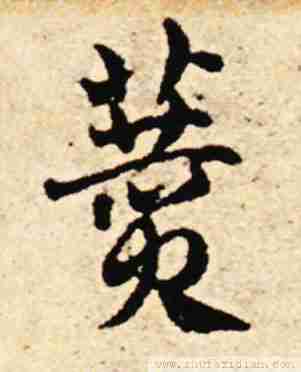 蕡
www.shufazidian.com